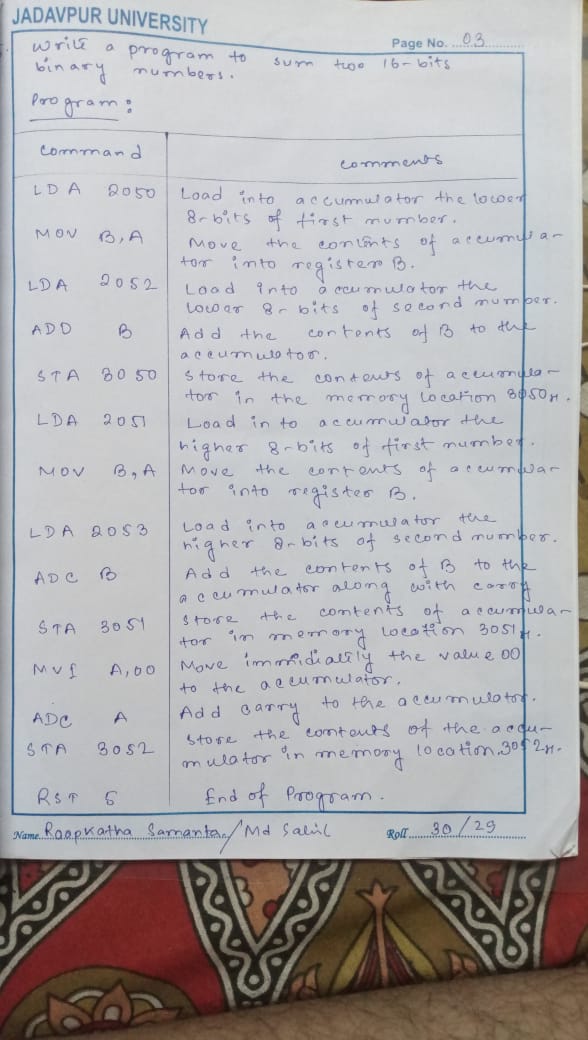 JADAVPUR UNIVERSITY
Page No. 03
Write a program to sum two 16-bits
binary numbers.
Program:
Command
Comments
LDA 2050 Load into accumulator the lower
8-bits of first number.
MOV B,A Move the contents of accumula-
tor into register B.
LDA 2052 Load into accumulator the
lower 8-bits of second number.
ADD B Add the contents of B to the
accumulator.
STA 3050 Store the contents of accumula-
tor in the memory location 3050H.
LDA 2051 Load in to accumulator the
higher 8-bits of first number.
MOV B,A Move the contents of accumula-
tor into register B.
LDA 2053 Load into accumulator the
higher 8-bits of second number.
ADC B Add the contents of B to the
accumulator along with carry
STA 3051 Store the contents of accumula-
tor in memory location 3051H.
MVI A,00 Move immidiatily the value 00
to the accumulator.
ADC A Add carry to the accumulator.
STA 3052 Store the contents of the accu-
mulator in memory location 3052H.
RST 5 End of Program.
Name Raapkatha Samanta/Md Roll 30/29